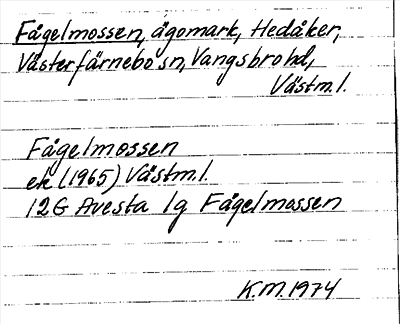 Fågelmossen, ägomark, Hedåker,
Västerfärnebo sn, Vangsbro hd,
Västm.l.
Fågelmossen
ek (1965) Västm.l.
12G Avesta 1g Fågelmossen
K.M. 1974